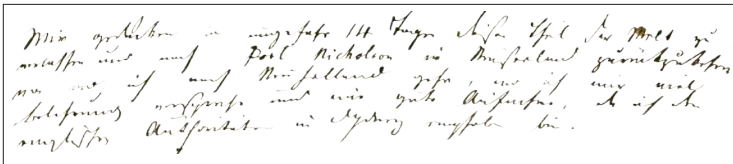 Wir gedenken in ungefähr 14 Tagen diesen Theil der Welt zu
verlassen und nach Port Nicholson in Neuseeland zurückzukehren
von wo ich nach Neu Holland gehe, wo ich mir viel
Belehrung verspreche und eine gute Aufnahme, da ich den
englischen Authoritäten in Sydney empfohlen bin.